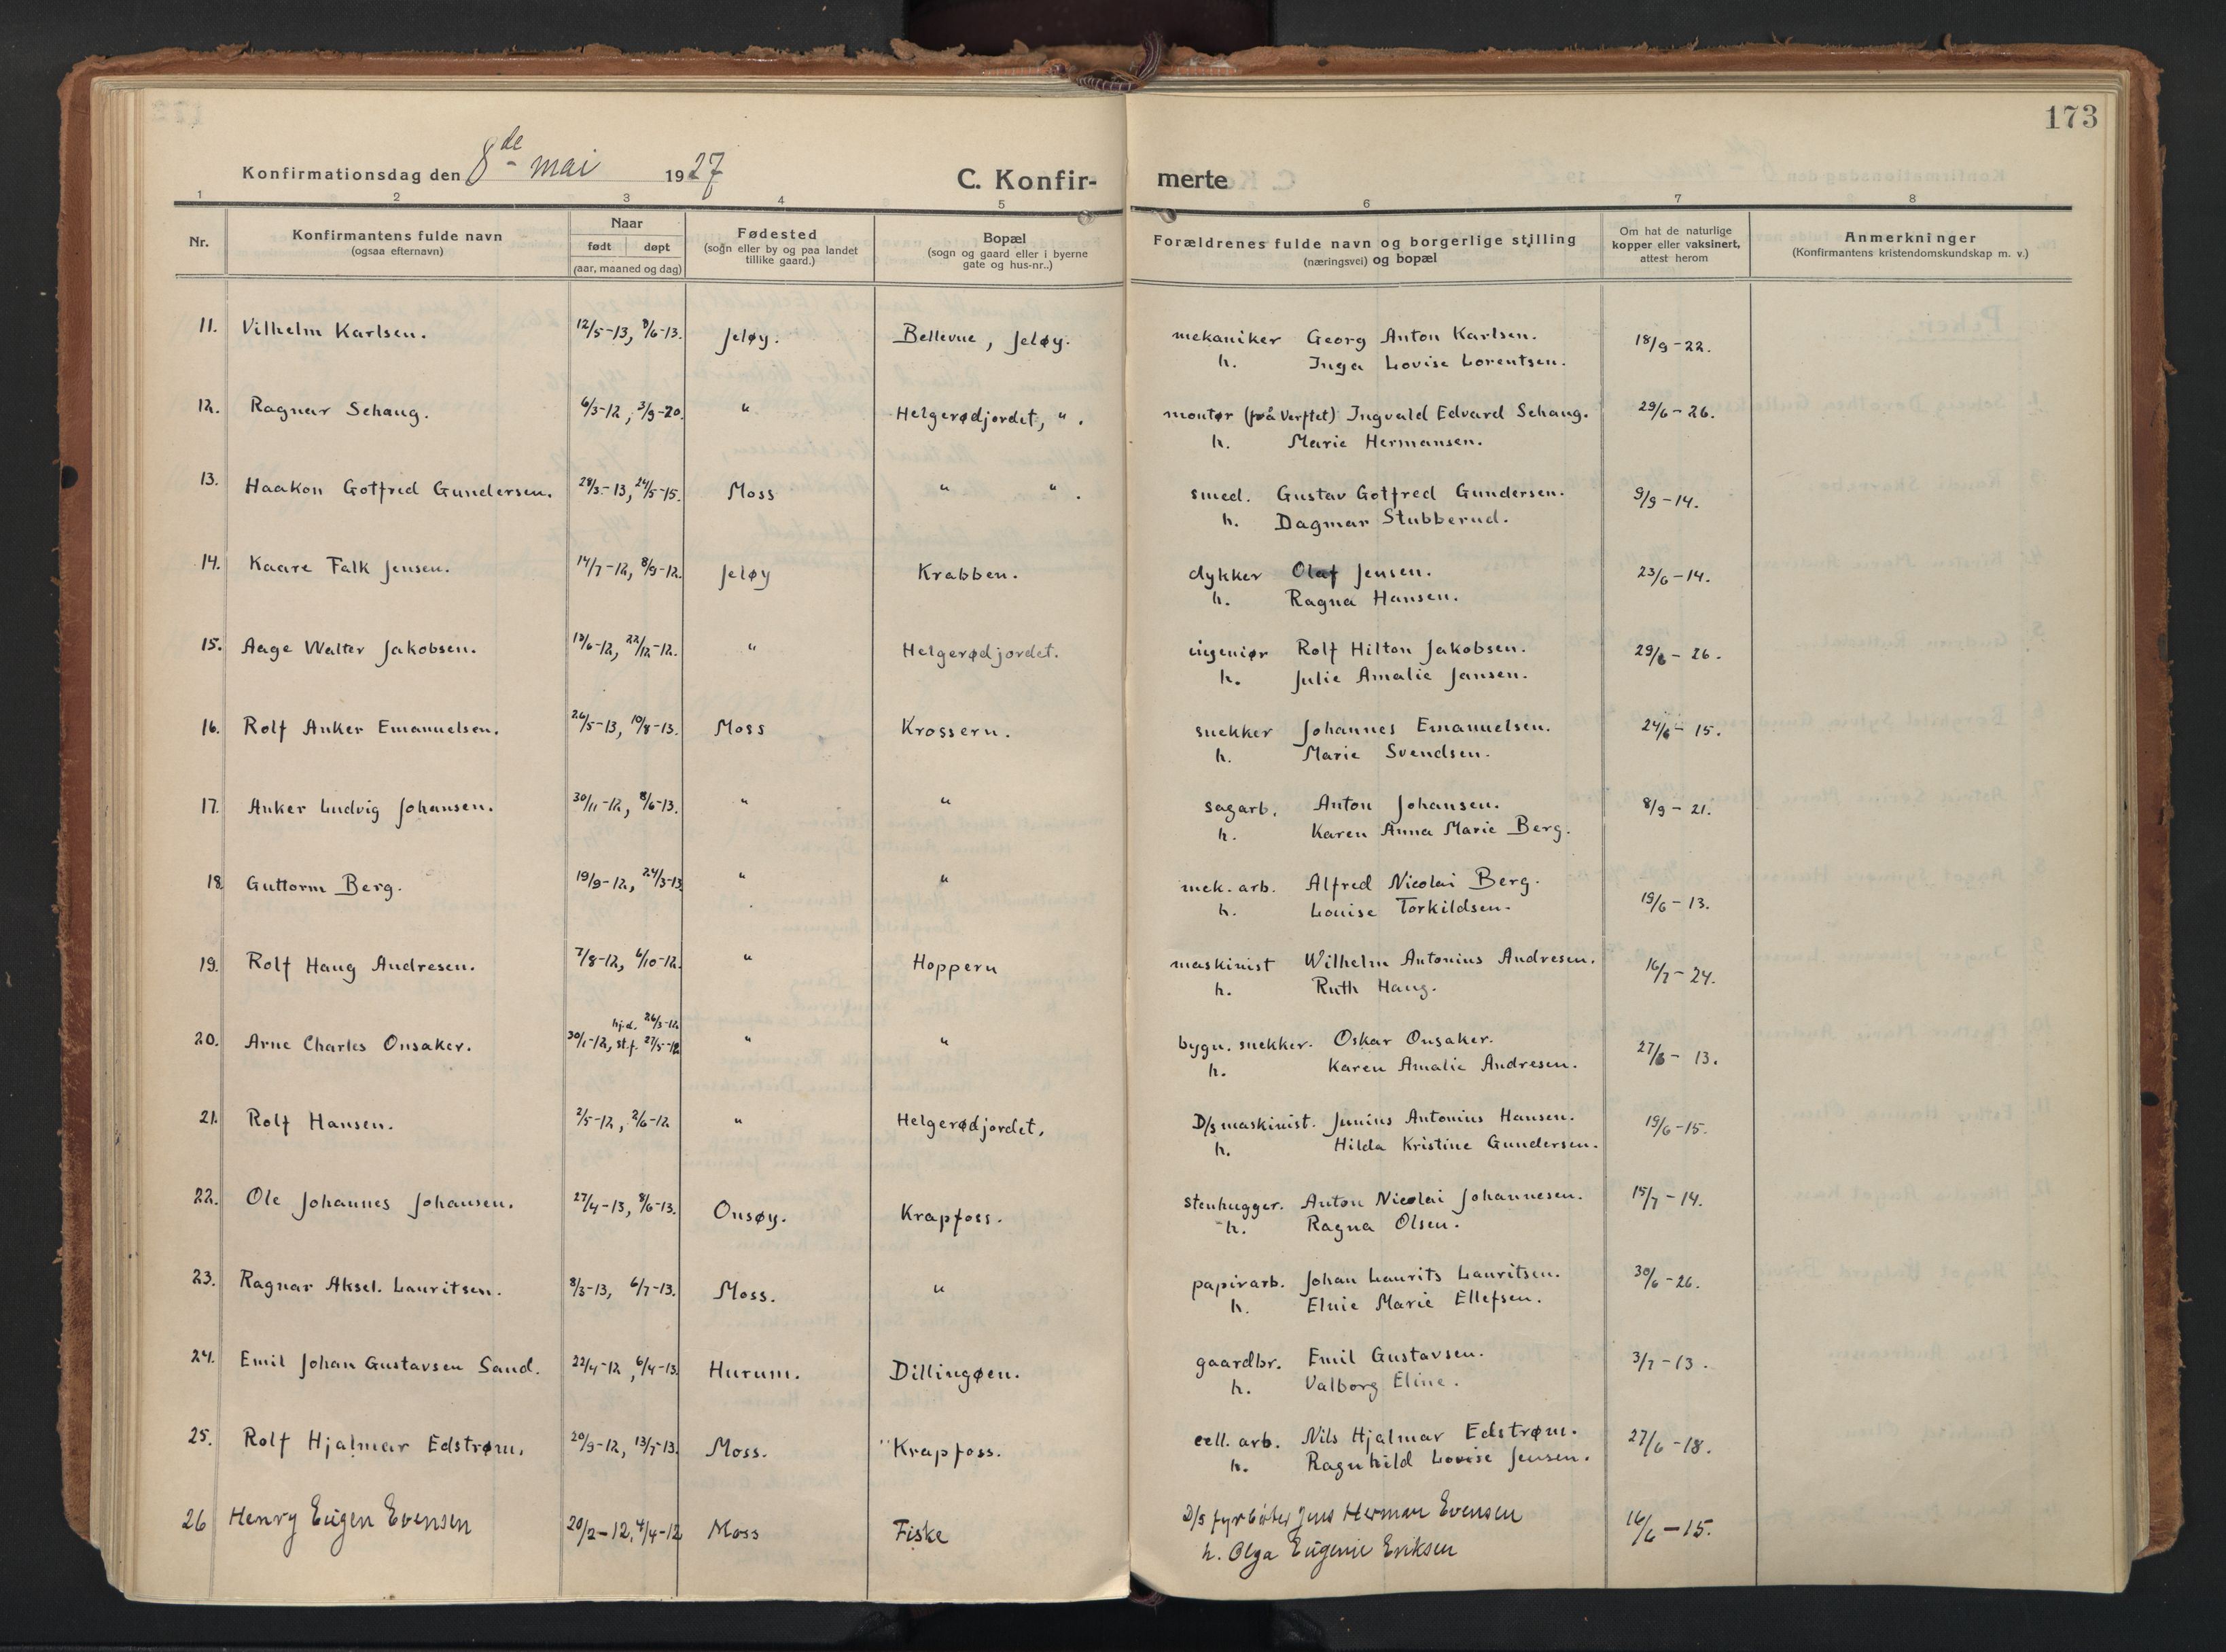 173
Konfirmationsdag den 8de mai 1927
C. Konfir- merte
1 2 3 4 5 6 7 8
Nr.
Konfirmantens fulde navn
(ogsaa efternavn)
Naar
født døpt
(aar, maaned og dag)
Fødested
(sogn eller by og paa landet
tillike gaard.)
Bopæl
(sogn og gaard eller i byerne
gate og hus-nr..)
Forældrenes fulde navn og borgerlige stilling
(næringsvei) og bopæl
Om hat de naturlige
kopper eller vaksinert,
attest herom
Anmerkninger
(Konfirmantens kristendomskundskap m. v.)
11. Vilhelm Karlsen. 12/5-13, 8/6-13. Jeløy. Bellevue, Jeløy. mekaniker Georg Anton Karlsen. 18/9-22.
h. Inga Lovise Lorentsen.
12. Ragnar Sehaug. 6/3-12, 3/9-20. " Helgerødjordet, ". montør (på Verftet) Ingvald Edvard Sehaug. 29/6-26.
h. Marie Hermansen.
13. Haakon Gotfred Gundersen. 28/3-13, 24/5-15. Moss " ". smed. Gustav Gotfred Gundersen. 9/9-14.
h. Dagmar Stubberud.
14. Kaare Falk Jensen. 14/7-12, 8/9-12. Jeløy Krabben. dykker Olaf Jensen. 23/6-14.
h. Ragna Hansen.
15. Aage Walter Jakobsen. 13/6-12, 22/12-12. " Helgerødjordet. ingeniør Rolf Hilton Jakobsen. 29/6-26.
h. Julie Amalie Jansen.
16. Rolf Anker Emanuelsen. 26/5-13, 10/8-13. Moss Krossern. snekker Johannes Emanuelsen. 24/6-15.
h. Marie Svendsen.
17. Anker Ludvig Johansen. 30/11-12, 8/6-13. " " sagarb. Anton Johansen. 8/9-21.
h. Karen Anna Marie Berg.
18 Guttorm Berg. 19/9-12, 24/3-13 " " mek. arb. Alfred Nicolai Berg. 19/6-13.
h. Louise Torkildsen.
19. Rolf Haug Andresen. 7/8-12, 6/10-12. " Hoppern maskinist Wilhelm Antonius Andresen. 16/7-24.
h. Ruth Haug.
hj.d. 26/3-12.
20. Arne Charles Onsaker. 30/1-12, st.f. 27/5-12 " " bygn. snekker. Oskar Onsaker. 27/6-13.
h. Karen Amalie Andresen.
21. Rolf Hansen. 2/5-12, 2/6-12 " Helgerødjordet, D/s maskinist. Junius Antonius Hansen. 19/6-15.
h. Hilda Kristine Gundersen.
22. Ole Johannes Johansen. 27/4-13, 8/6-13. Onsøy. Krapfoss. stenhugger. Anton Nicolai Johannesen. 15/7-14.
h. Ragna Olsen.
23. Ragnar Aksel. Lauritsen. 8/3-13, 6/7-13. Moss. " papirarb. Johan Laurits Lauritsen. 30/6-26.
h. Elnie Marie Ellefsen.
24. Emil Johan Gustavsen Sand. 22/4-12, 6/4-13. Hurum. Dillingøen. gaardbr. Emil Gustavsen. 3/7-13.
h. Valborg Eline.
25. Rolf Hjalmar Edstrøm. 20/9-12, 13/7-13. Moss. "Krapfoss. cell. arb. Nils Hjalmar Edstrøm. 27/6-18.
h. Ragnhild Lovise Jensen.
26 Henry Eugen Evensen 20/2-12, 4/4-12 Moss Fiske D/s fyrbøter Jens Herman Evensen 16/6-15.
h. Olga Eugenie Eriksen